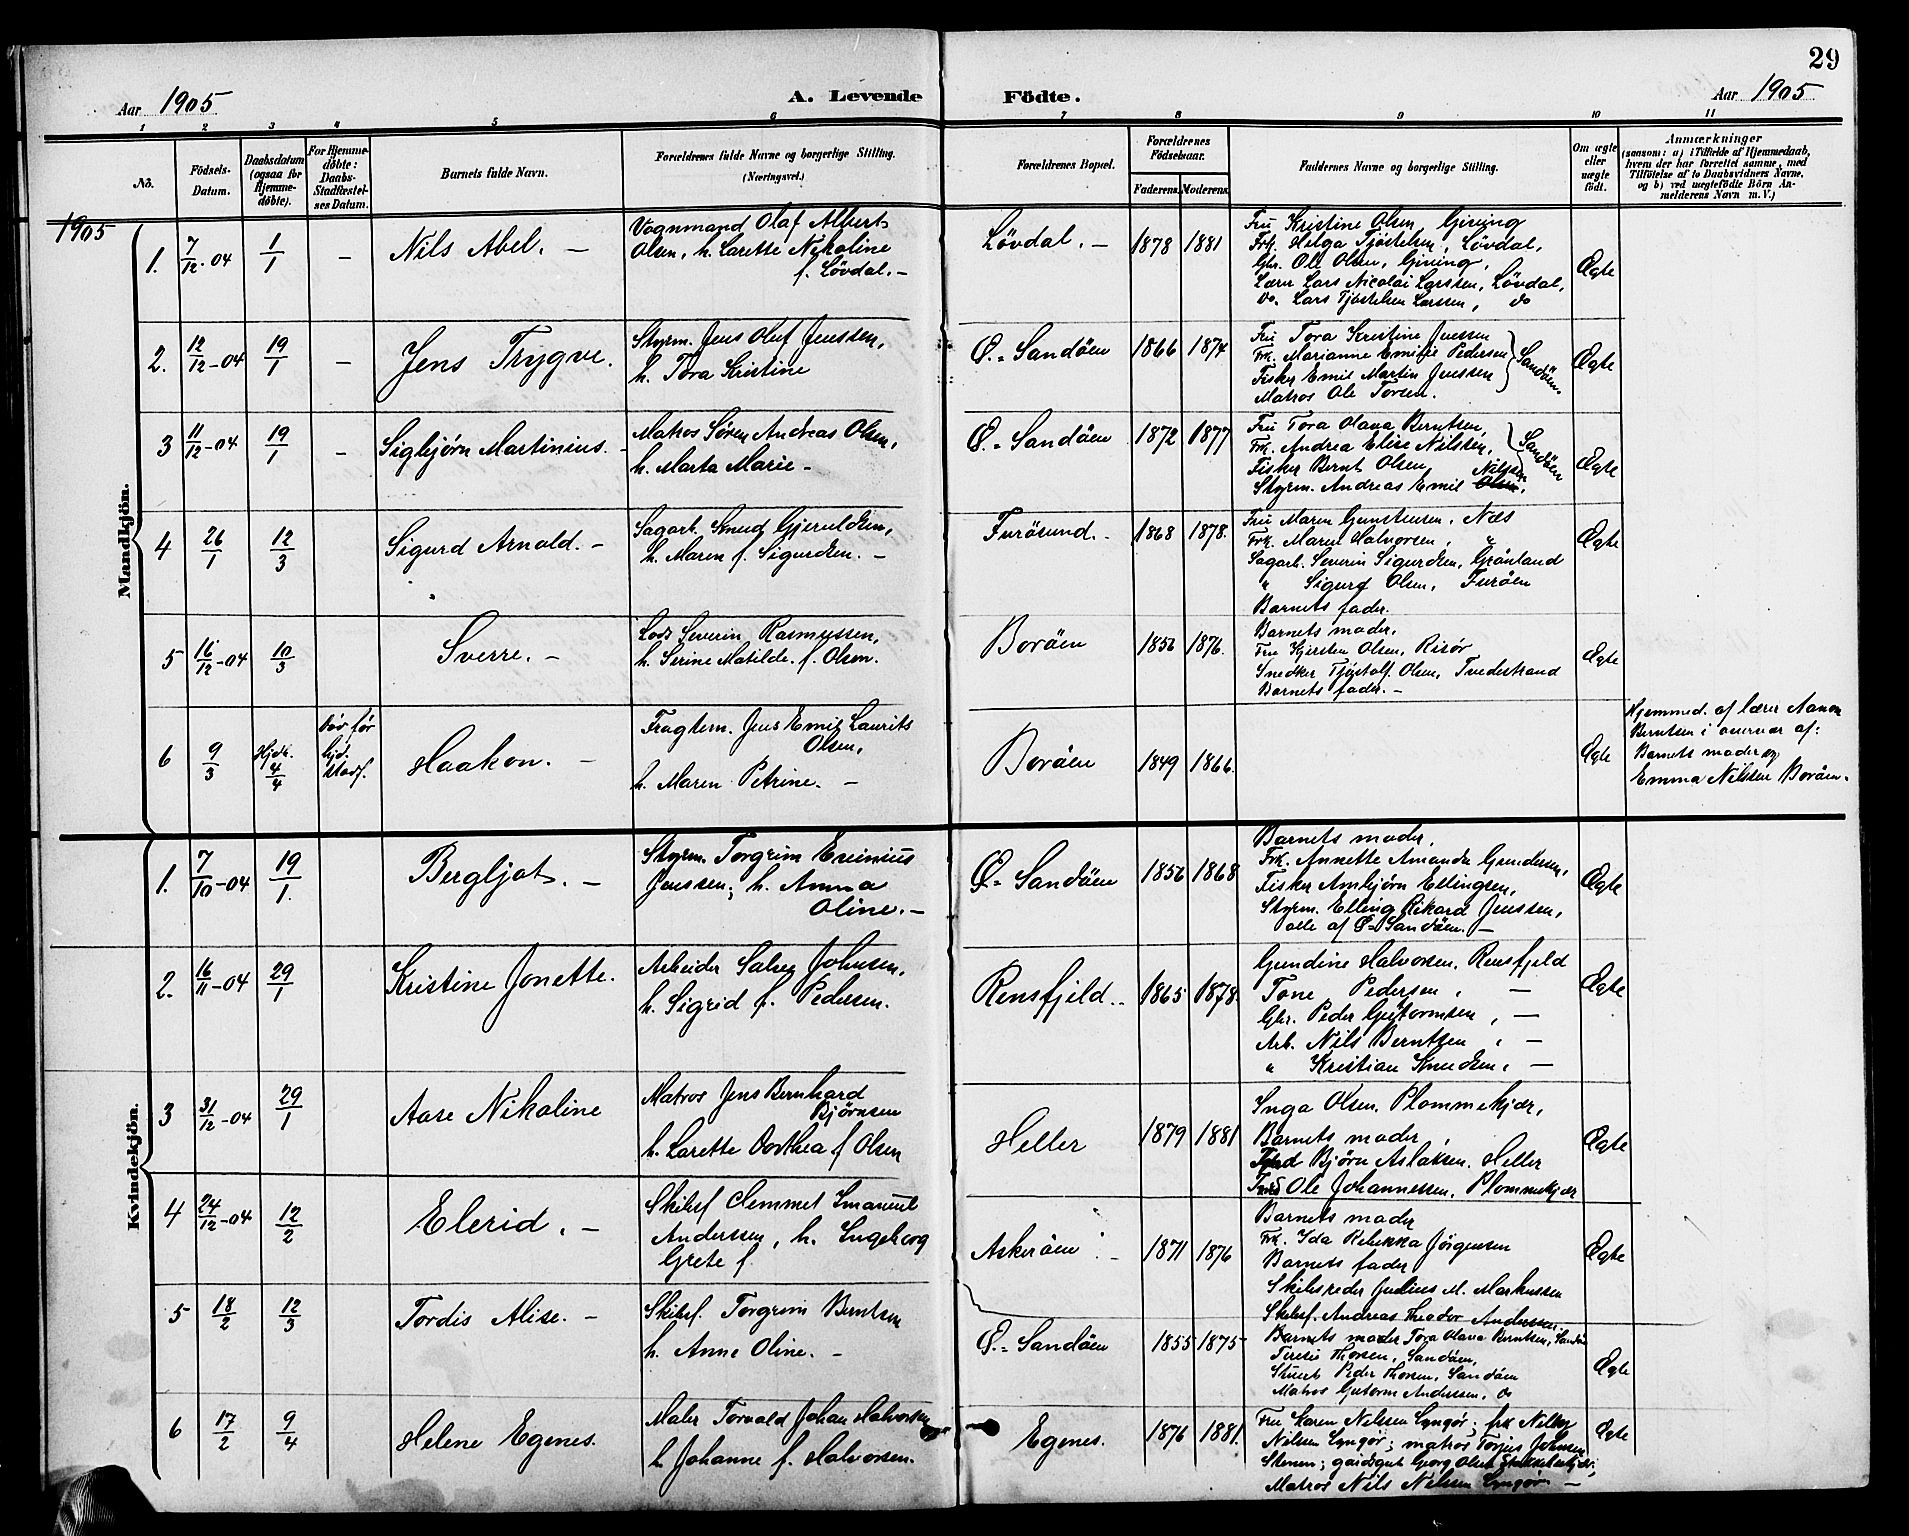 29
Aar 1905 A. Levende Födte. Aar 1905
1 2 3 4 5 6 7 8 9 10 11
No.
Födsels-
Datum.
Daabsdatum
(ogsaa for
Hjemme-
döbte).
For Hjemme-
döbte:
Daabs-
Stadfæstel-
ses Datum.
Barnets fulde Navn.
Forældrenes fulde Navne og borgerlige Stilling.
(Næringsvei.)
Forældrenes Bopæl.
Forældrenes
Födselsaar.
Faderens. Moderens.
Faddernes Navne og borgerlige Stilling.
Om ægte
eller
uægte
födt.
Anmærkninger
(saasom: a) i Tilfælde af Hjemmedaab,
hvem der har forrettet samme, med
Tilföielse af to Daabsvidners Navne,
og b) ved uægtefödte Börn An-
melderens Navn m. V.)
1905
Mandkjön.
1. 7/12-04 1/1 – Nils Abel. –
Vognmand Olaf Albert
Olsen, h. Larette Nikoline
f. Lövdal. –
Lövdal. – 1878 1881
Fru Kristine Olsen, Giving
Frk. Helga Tjöstelsen, Lövdal,
Gbr. Ole Olsen, Giving,
Lærer Lars Nicolai Larssen, Lövdal,
Do. Lars Tjöstelsen Larssen, do
Ægte
2. 12/12-04 19/1 – Jens Trygve.
Styrm. Jens Oluf Jenssen,
h. Tora Kristine
Ö.= Sandöen 1866 1874
Fru Tora Kristine Jenssen
Frk. Marianne Emilie Pedersen
Fisker Emil Martin Jenssen
Matros Ole Torsen.
Sandöen.
Ægte
3 11/12-04 19/1 – Sigbjørn Martinius. –
Matros Søren Andreas Olsen,
h. Marta Marie –
Ö.- Sandöen 1872 1877
Fru Tora Olava Berntsen,
Frk. Andrea Elise Nilssen,
Fisker Bernt Olsen
Styrm. Andreas Emil Olsen, Nilssen
Sandöen
Ægte
4 26/1 12/3 Sigurd Arnold. –
Sagarb. Knud Gjeruldsen,
h. Maren f. Sigurdsen. –
Furösund. – 1868 1878.
Fru Maren Gunstensen, Næs
Frk. Maren Halvorsen, "
Sagarb. Severin Sigurdsen, Grönland
" Sigurd Olsen, Furöen
Barnets fader.
Ægte
5 16/12-04 10/3 Sverre. –
Lods Severin Rasmussen,
h. Serine Matilde. f. Olsen.
Boröen 1856 1876.
Barnets moder,
Fru Kirsten Olsen, Risør
Snedker Tjöstolf Olsen, Tvedestrand
Barnets fader. –
Ægte
6 9/3 Hjdb. 4/4 Döv før hjd. stadf. Haakon. –
Fragtem. Jens Emil Laurits
Olsen,
h. Maren Petrine. –
Boröen 1849 1866.
Ægte
Hjemmed. af lærer Aanon
Berntsen i overvær af:
Barnets moder og
Emma Nilsen Boröen.
Kvindekjön.
1. 7/10-04 19/1. Bergljot. –
Styrm. Torgrim Erinius
Jenssen; h. Anna
Oline. –
Ö.= Sandöen 1856 1868
Barnets moder,
Frk. Annette Amanda Gundersen,
Fisker Ambjörn Ellingsen,
Styrm. Elling Rikard Jenssen,
alle af Ö= Sandöen. –
Ægte
2. 16/11-04 29/1 Kristine Jonette.
Arbeider Salve Johnsen,
h. Sigrid f. Pedersen.
Rensfjeld. – 1865 1878.
Gundine Halvorsen, Rensfjeld
Tone Pedersen, –
Gbr. Peder Guttormsen, –
Arb. Nils Berntsen, –
" Kristian Knudsen, –
Ægte
3 31/12-04 29/1 Aase Nikoline
Matros Jens Bernhard
Bjørnsen
h. Larette Dorthea f Olsen
Heller 1879 1881
Inga Olsen, Plommekjær,
Barnets moder,
Bjørn Aslaksen, Heller
Ole Johannessen, Plommekjær
Ægte
4 24/12-04 12/2 Elerid. –
Skibsf Clemmet Imanuel
Anderssen, h. Ingeborg
Grete f.
Askeröen. – 1871 1876
Barnets moder
Frk. Ida Rebekka Jörgensen
Barnets fader
Skibsreder Julius M. Markussen
Skibsf. Andreas Theodor Anderssen.
Ægte
5 18/2 12/3 Tordis Alise. –
Skibsf. Torgrim Berntsen
h. Anne Oline. –
Ö.= Sandöen 1855 1875
Barnets moder Tora Olava Berntsen, Sandö
Teresie Thorsen, Sandöen,
Stuert Peder Thorsen, Sandöen
Matros Gutorm Andersen, do
Ægte
6 17/2 9/4 Helene Egenes.
Maler Torvald Johan Halvorsen
h Johanne f. Halvorsen.
Egenes. 1876 1881.
Fru Karen Nilssen Lyngör; frk Nilby
Nilssen Lyngör; matros Torjus Johnsen
Stenen; gårdsgut Georg Olsen
Matros Nils Nilssen Lyngör –
Ægte